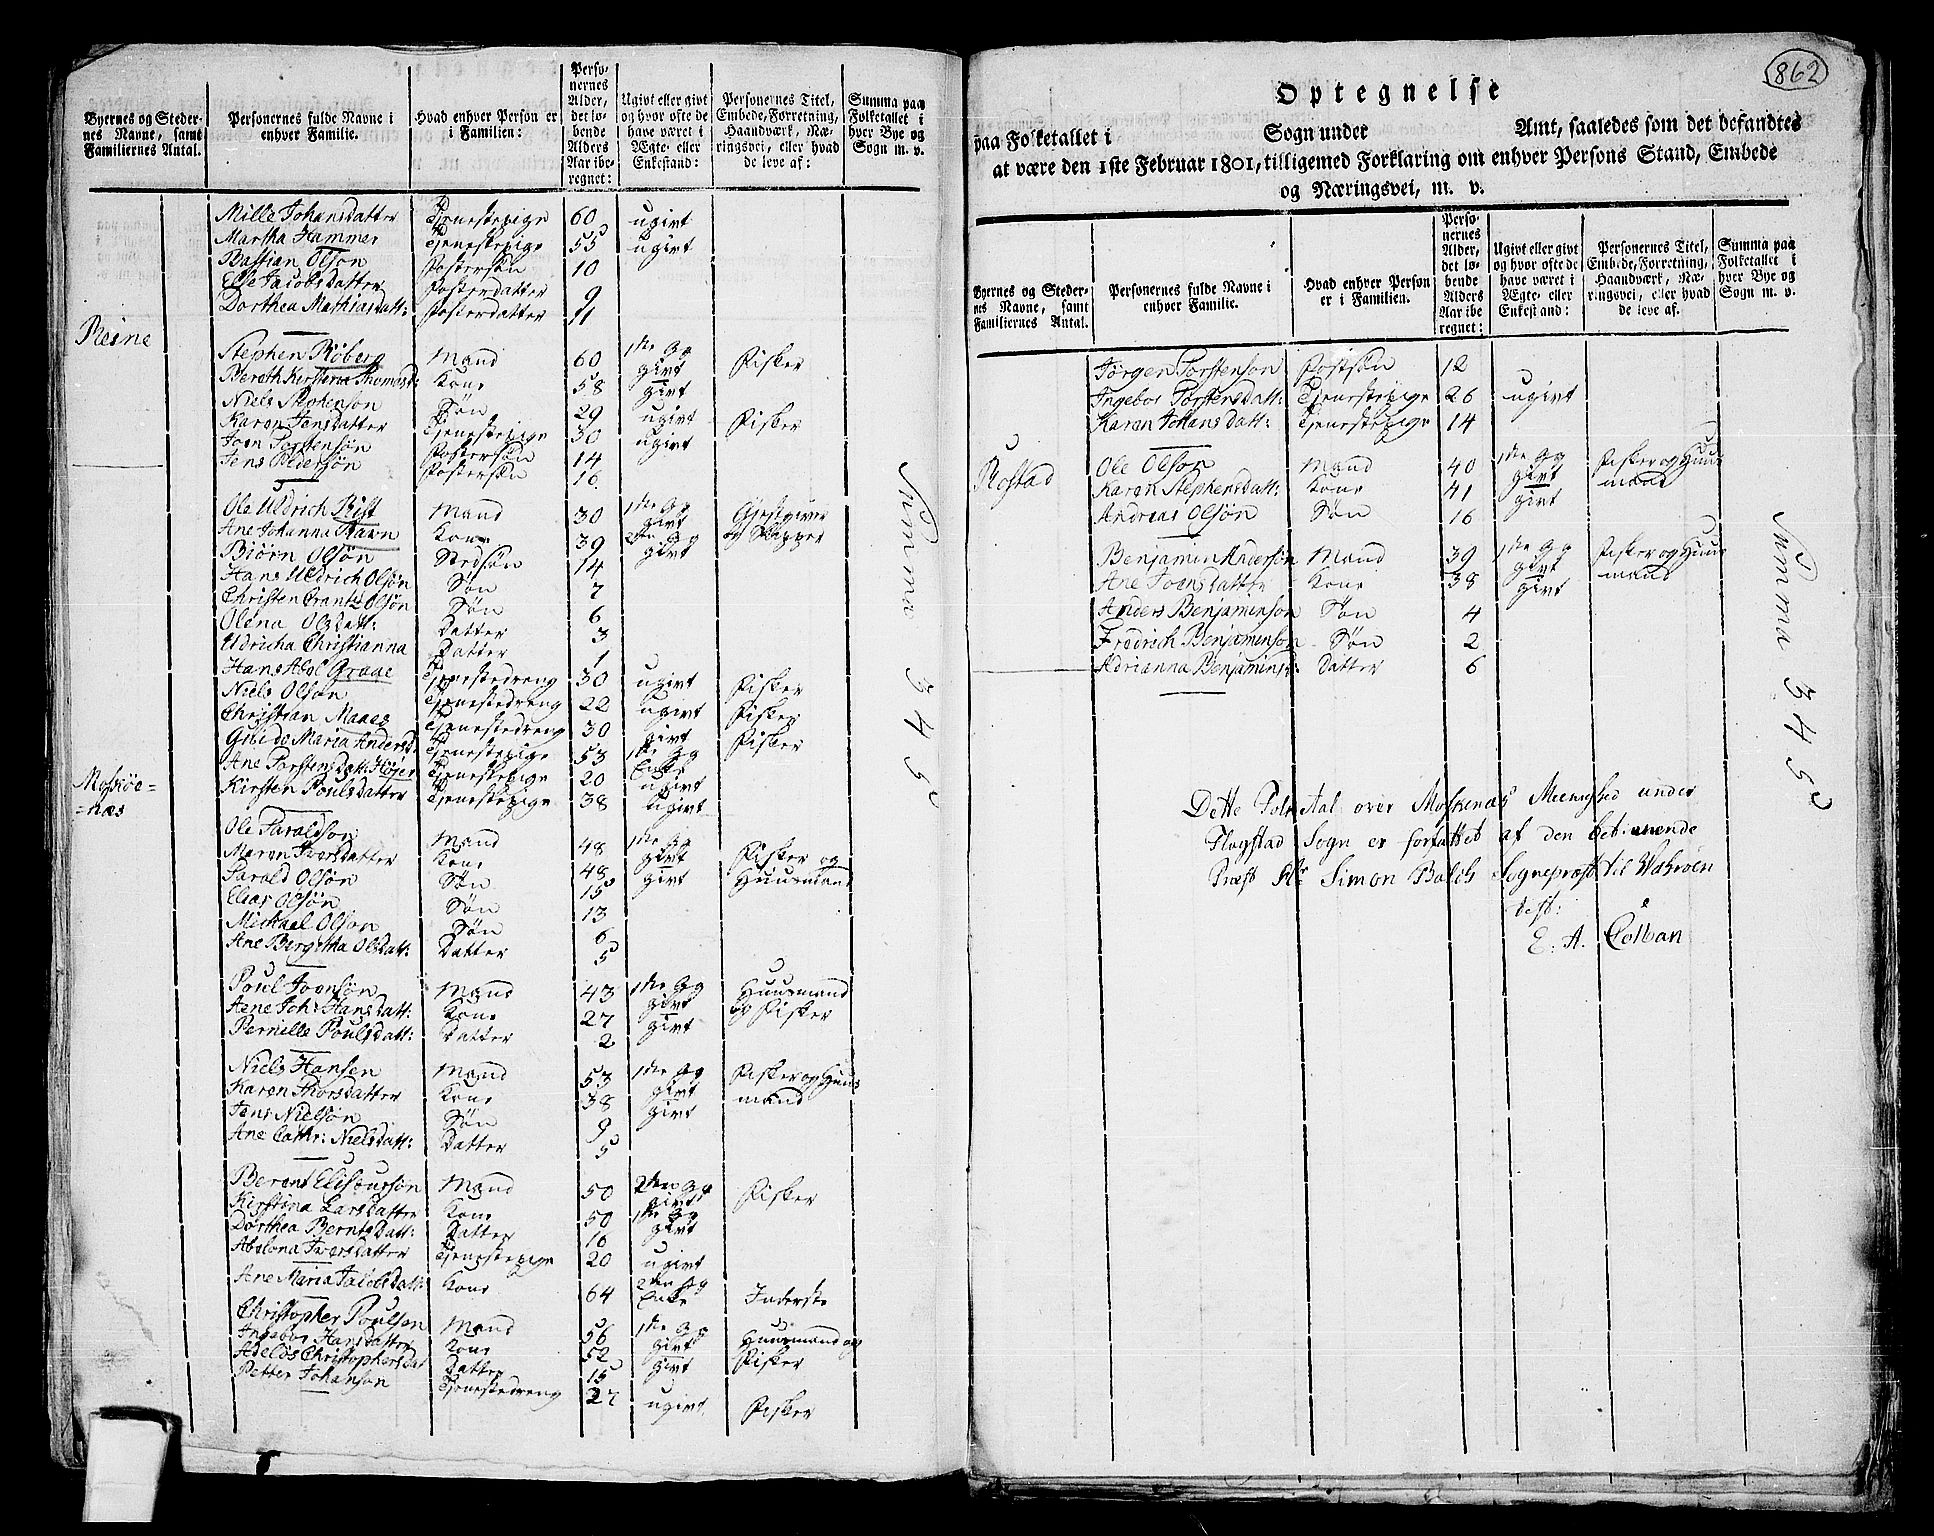 Byernes og Steder- nes Navne, samt Familiernes Antal.
Personernes fulde Navne i enhver Familie.
Hvad enhver Person er i Familien:
Perso- nernes Alder, det lø- bende Alders Aar ibe- regnet:
Ugivt eller givt og hvor ofte de have været i Ægte- eller Enkestand:
Personernes Titel, Embede, Forretning, Haandværk, Næ- ringsvei, eller hvad de leve af:
Summa paa Folketallet i hver Bye og Sogn m. v.
Mille Johansdatter Tjenestepige 60 ugivt
Martha Hammer Tjenestepige 55 ugivt
Bastian Olsøn Fostersøn 10
Elle Jacobsdatter Fosterdatter 9
Dorthea Mathiasdatt: Fosterdatter 11
Reine
Stephen Røberg Mand 60 1ste Gg givt Fisker
Bereth Kirstena Thomasd: Kone 58 givt
Niels Stephenson Søn 29 ugivt Fisker
Karen Jensdatter Tjenestepige 30 ugivt
Joen Torstensøn Fostersøn 14
Jens Pedersøn Fostersøn 16.
Ole Uldrich Rist Mand 30 1ste Gg givt Gjestgiver
Ane Johanna Ravn Kone 39 2den Gg givt og Skipper
Biørn Olsøn Stedsøn 14
Hans Uldrich Olsøn Søn 7
Christen Crantz Olsøn Søn 6
Olena Olsdatt: Datter 3
Uldricha Christianna Datter 1
Hans Abel Graae Tjenestedreng 30 ugivt Fisker
Niels Olsøn Tjenestedreng 22 ugivt Fisker
Christian Maaes Tjenestedreng 30 givt Fisker
Maria Andersd. Tjenestepige 53 1ste Gg Enke
Ane Torstensdatt: Højer Tjenestepige 20 ugivt
Kirsten Poulsdatter Tjenestepige 38 Ugivt
Moskøe=
=næs
Ole Taraldson Mand 48 1ste Gg givt Fisker og
Maren Iversdatter Kone 48 givt Huusmand
Tarald Olsøn Søn 15
Elias Olsøn Søn 13
Michael Olson Søn 6
Ane Bergitha Olsdatt: Datter 5
Poul Joensøn Mand 43 1ste Gg givt Huusmand
Aene Joh: Hansdatt: Kone 27 givt og Fisker
Pernille Poulsdatt: Datter 2
Niels Hansen Mand 53 1ste Gg givt Fisker og Huus
Karen Thorsdatter Kone 38 givt mand
Jens Nielsøn Søn 9
Ane Cathr: Nielsdatt: Datter 5
Berent Eliseursøn Mand 50 2den Gg givt Fisker
Kirstina Larsdatter Kone 50 1ste Gg givt
Dorthea Berntsdatt: Datter 16
Abelona Iversdatter Tjenestepige 20 ugivt
Ane Maria Jacobsdatt: Kone 64 2den Gg Enke Inderste
Christopher Poulsen Mand 56 1ste Gg givt Huusmand og
Ingebor Hansdatter Kone 52 givt Fisker
Adelos Christophersdat Datter 15
Petter Johanson Tjenestedreng 27 ugivt Fisker
Summa 345
862
Optegnelse
paa Folketallet i Sogn under Amt, saaledes som det befandtes
at være den 1ste Februar 1801, tilligemed Forklaring om enhver Persons Stand, Embede
og Næringsvei, m. v.
Byernes og Steder- nes Navne, samt Familiernes Antal.
Personernes fulde Navne i enhver Familie.
Hvad enhver Person er i Familien.
Perso- nernes Alder, det lø- bende Alders Aar ibe- regnet:
Ugivt eller givt og hvor ofte de have været i Ægte- eller Enkestand:
Personernes Titel, Embede, Forretning, Haandværk, Næ- ringsvei, eller hvad de leve af.
Summa paa Folketallet i hver Bye og Sogn m. v.
Jørgen Torstenson Fostsøn 12
Ingebor Torstensdatt: Tjenestepige 26 ugivt
Karen Johansdatt: Tjenestepige 14
Rostad
Ole Olson Mand 40 1ste Gg givt Fisker og Huus
Karen Stephensdatt: Kone 41 givt mand
Andreas Olsøn Søn 16
Benjamin Andersøn Mand 39 1ste Gg givt Fisker og Huus
Ane Joensdatter Kone 38 givt mand
Anders Benjaminson Søn 4
Fredrich Benjaminson Søn 2
Adrianna Benjaminsd: Datter 6
Summa 345
Dette Folketal over Moskenæs Meenighed under
Flagstad Sogn er forfattet af den betienende
Præst Hr Simon Balch Sognepræst til Værøen
test:
E. A. Colban